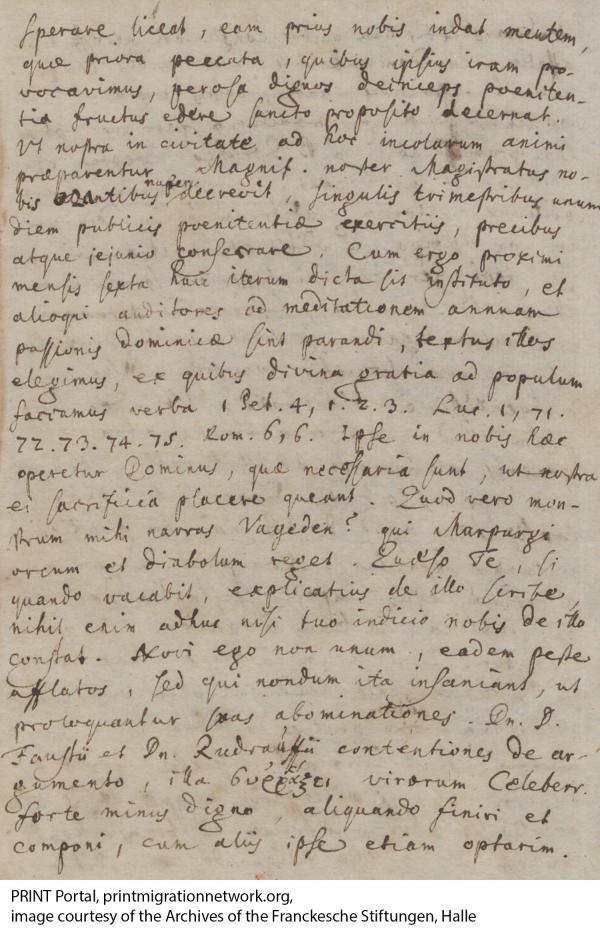 sperare liceat, eam prius nobis indat mentem,
quæ priora peccata, quibus ipsius iram pro-
vocavimus, perosa dignos deinceps poeniten-
tiæ fructus edere sancto proposito decernat.
Ut nostra in civitate ad hoc incolarum animi
præparentur Magnif. noster Magistratus no-
bis optantibus nuper decrevit, singulis trimestribus unum
diem publicis poenitentiæ exercitiis, precibus
atque jejunio consecrare. Cum ergo proximi
mensis sexta huic iterum dicta sit instituto, et
alioqui auditores ad meditationem annuam
passionis Dominicæ sint parandi, textus illos
elegimus, ex quibus divina gratia ad populum
faciamus verba 1 Pet. 4, 1. 2. 3. Luc. 1, 71.
72. 73. 74. 75. Rom. 6, 6. Ipse in nobis hæc
operetur Dominus, quæ necessaria sunt, ut nostra
ei sacrificia placere queant. Quod vero mon-
strum mihi narras Vageden? qui Marpurgi
orcum et diabolum neget. Quæso Te, si
quando vacabit, explicatius de illo scribe,
nihil enim adhuc nisi tuo indicio nobis de illo
constat. Novi ego non unum, eadem peste
afflatos, sed qui nondum ita insaniant, ut
proloquantur suas abominationes. Dn. D.
Faustii et Dn. Rudrauffii contentiones de ar-
gumento, illa virorum Celeberr.
forte minus digno, aliquando finiri et
componi, cum aliis ipse etiam optarim.
PRINT Portal, printmigrationnetwork.org,
image courtesy of the Archives of the Franckesche Stiftungen, Halle